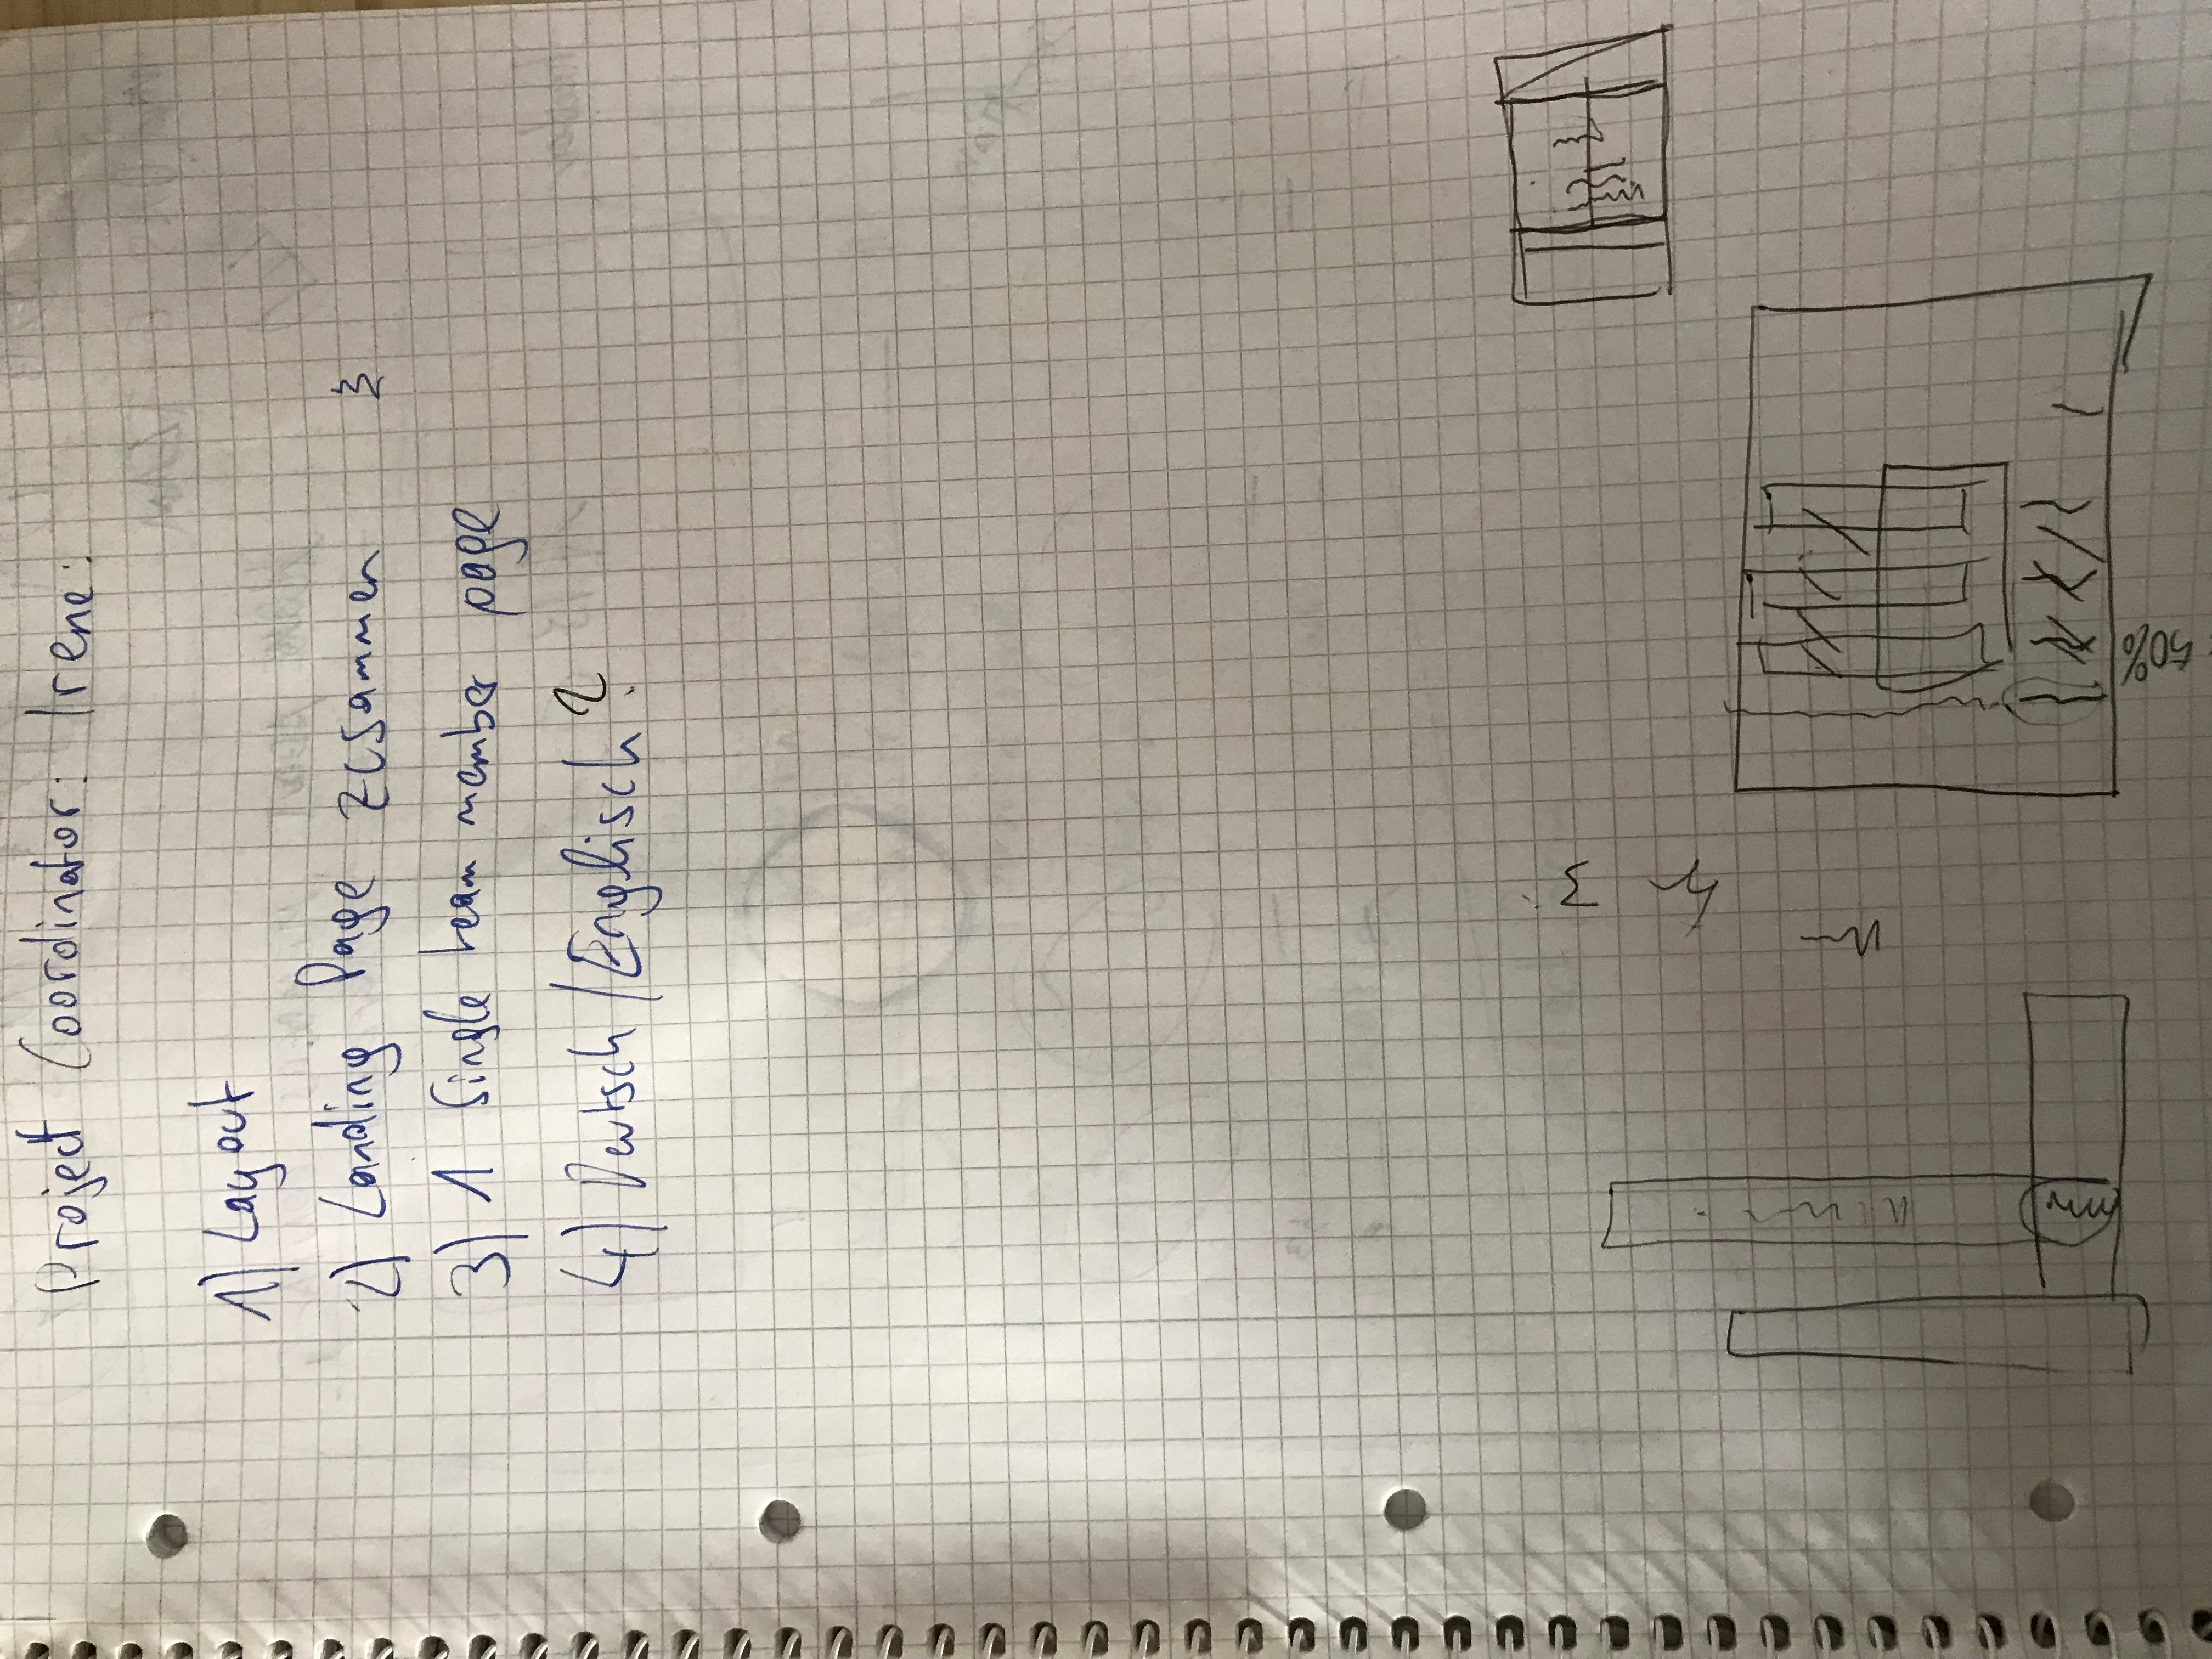 Project Coordinator: Irene:
1) Layout
2) Landing Page zusammen
3) 1 Single team member page
4) Deutsch / Englisch ?
50%